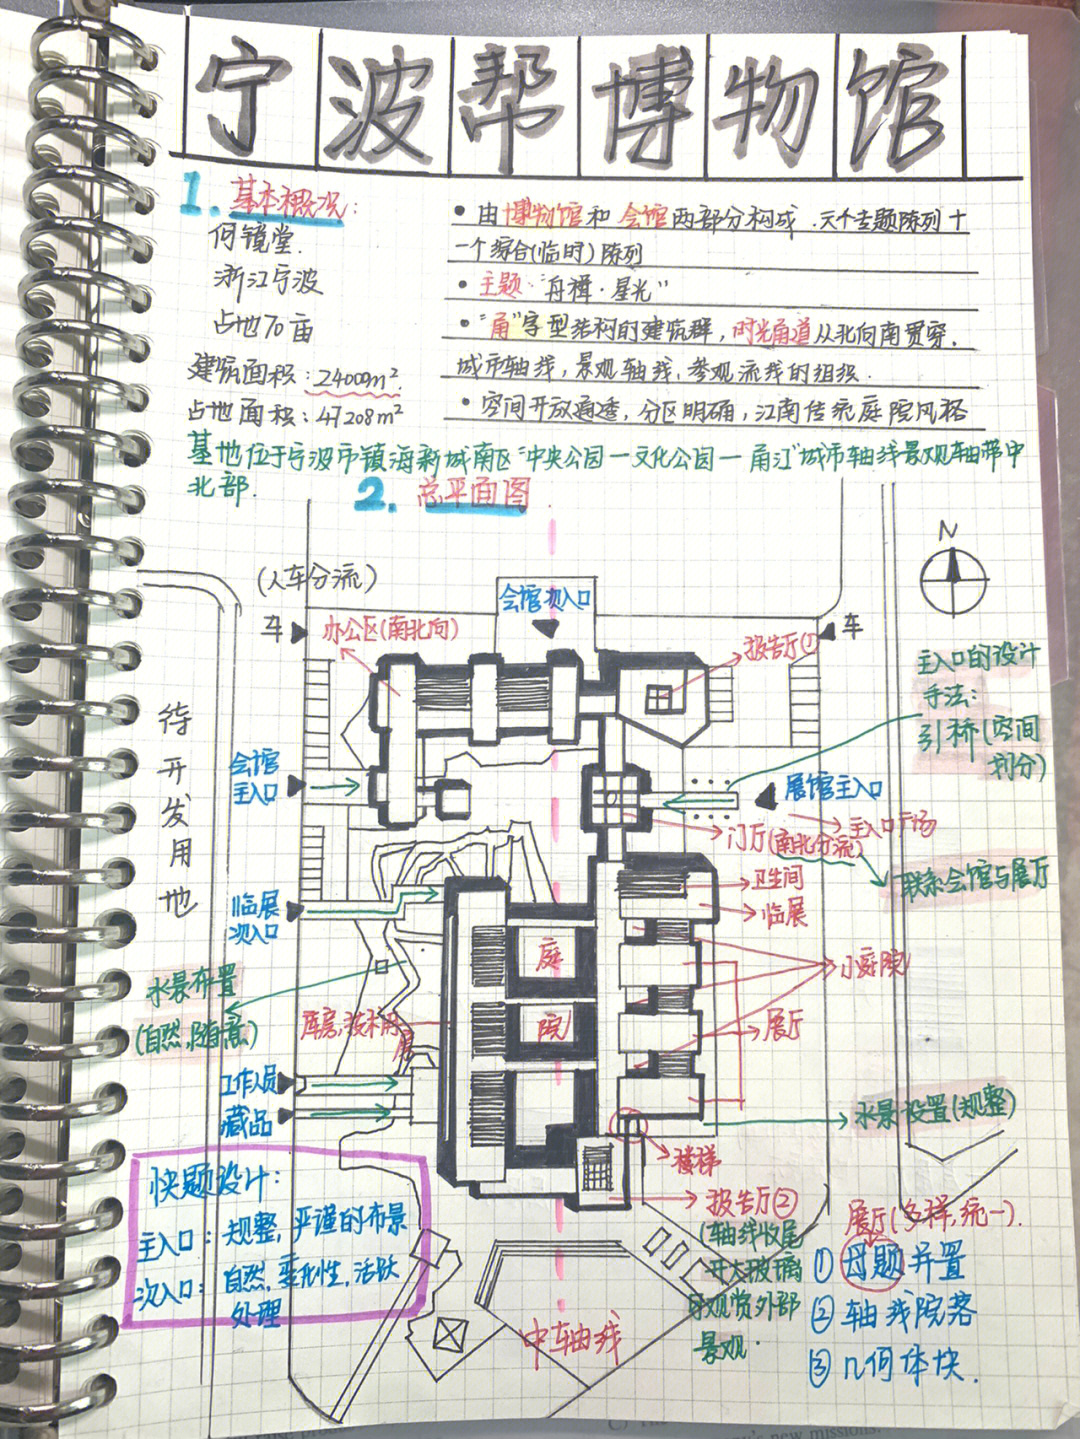 宁波帮博物馆
1. 基本概况:
何镜堂.
浙江宁波
占地70亩
建筑面积:24000m².
占地面积:47208m²
• 由博物馆和会馆两部分构成.六个专题陈列十
一个综合(临时)陈列
• 主题:"舟楫·星光"
• "甬"字型结构的建筑群,时光甬道从北向南贯穿.
城市轴线,景观轴线,参观流线的组织.
• 空间开放通透,分区明确,江南传统庭院风格
基地位于宁波市镇海新城南区"中央公园一文化公园一甬江"城市轴线景观轴带中
北部.
2. 总平面图
N
(人车分流)
会馆次入口
车
办公区(南北向)
报告厅①
车
主入口的设计
手法:
引桥(空间
划分)
待开发用地
会馆
主入口
展馆主入口
主入口广场
门厅(南北分流)
联系会馆与展厅
卫生间
临展
临展
次入口
庭
院
小庭院
水景布置
(自然,随意)
库房,技术用
房
展厅
工作人员
藏品
水景设置(规整)
楼梯
报告厅②
(轴线收尾
开大玻璃
观赏外部
景观.
快题设计:
主入口:规整,严谨的布景
次入口:自然,变化性,活跃
处理
中轴线
展厅(多样,统一).
① 母题并置
② 轴线院落
③ 几何体块.